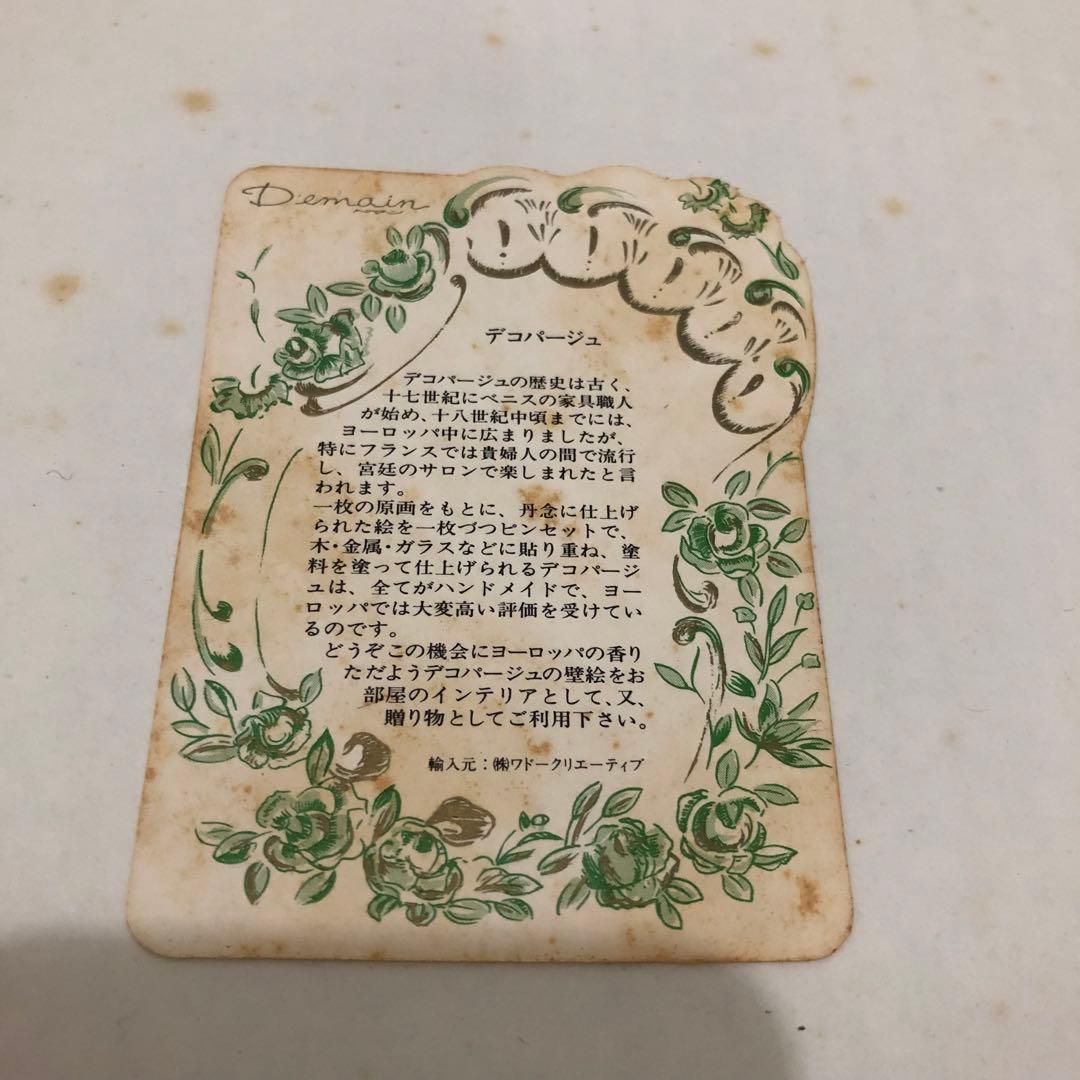 Demain
デコパージュ
デコパージュの歴史は古く、
十七世紀にベニスの家具職人
が始め、十八世紀中頃までには、
ヨーロッパ中に広まりましたが、
特にフランスでは貴婦人の間で流行
し、宮廷のサロンで楽しまれたと言
われます。
一枚の原画をもとに、丹念に仕上げ
られた絵を一枚づつピンセットで、
木・金属・ガラスなどに貼り重ね、塗
料を塗って仕上げられるデコパージ
ュは、全てがハンドメイドで、ヨー
ロッパでは大変高い評価を受けてい
るのです。
どうぞこの機会にヨーロッパの香り
ただようデコパージュの壁絵をお
部屋のインテリアとして、又、
贈り物としてご利用下さい。
輸入元：㈱ワドークリエーティブ